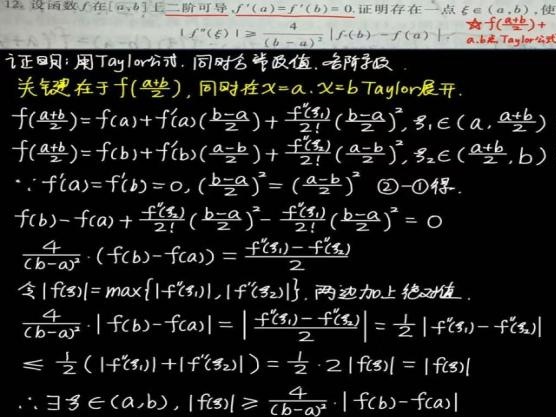 12. 设函数f在[a,b]上二阶可导, f'(a)=f'(b)=0. 证明存在一点 ξ∈(a,b), 使得
|f''(ξ)| ≥ 4/(b-a)² |f(b)-f(a)|.
☆ f(a+b/2)+
a.b处Taylor公式
证明: 用Taylor公式. 同时含
关键在于 f(a+b/2), 同时在x=a. x=b Taylor展开.
f(a+b/2)=f(a)+f'(a)(b-a/2)+f''(ξ₁)/2!(b-a/2)², ξ₁∈(a, a+b/2)
f(a+b/2)=f(b)+f'(b)(a-b/2)+f''(ξ₂)/2!(a-b/2)², ξ₂∈(a+b/2, b)
∵ f'(a)=f'(b)=0, (b-a/2)²=(a-b/2)² ②-①得.
f(b)-f(a)+f''(ξ₂)/2!(b-a/2)²-f''(ξ₁)/2!(b-a/2)²=0
4/(b-a)²·(f(b)-f(a))=f''(ξ₁)-f''(ξ₂)/2
令|f(ξ)|=max{|f''(ξ₁)|,|f''(ξ₂)|}. 两边加上绝对值.
4/(b-a)²·|f(b)-f(a)|=|f''(ξ₁)-f''(ξ₂)/2|=1/2|f''(ξ₁)-f''(ξ₂)|
≤1/2(|f''(ξ₁)|+|f''(ξ₂)|)=1/2·2|f(ξ)|=|f(ξ)|
∴∃ξ∈(a,b), |f(ξ)|≥4/(b-a)²·|f(b)-f(a)|